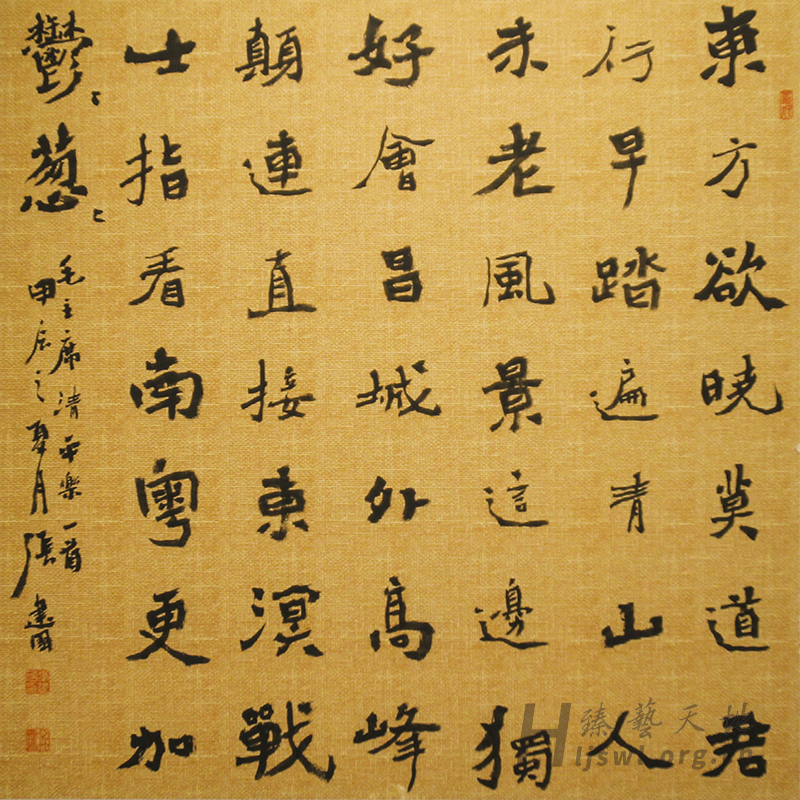 東方欲晓莫道君
行早踏遍青山人
未老風景這邊獨
好會昌城外高峰
顛連直接東溟戰
士指看南粵更加
鬱々葱々
毛主席清平樂一首
甲辰之夏月張建國
臻藝天地
ljswl.org.cn